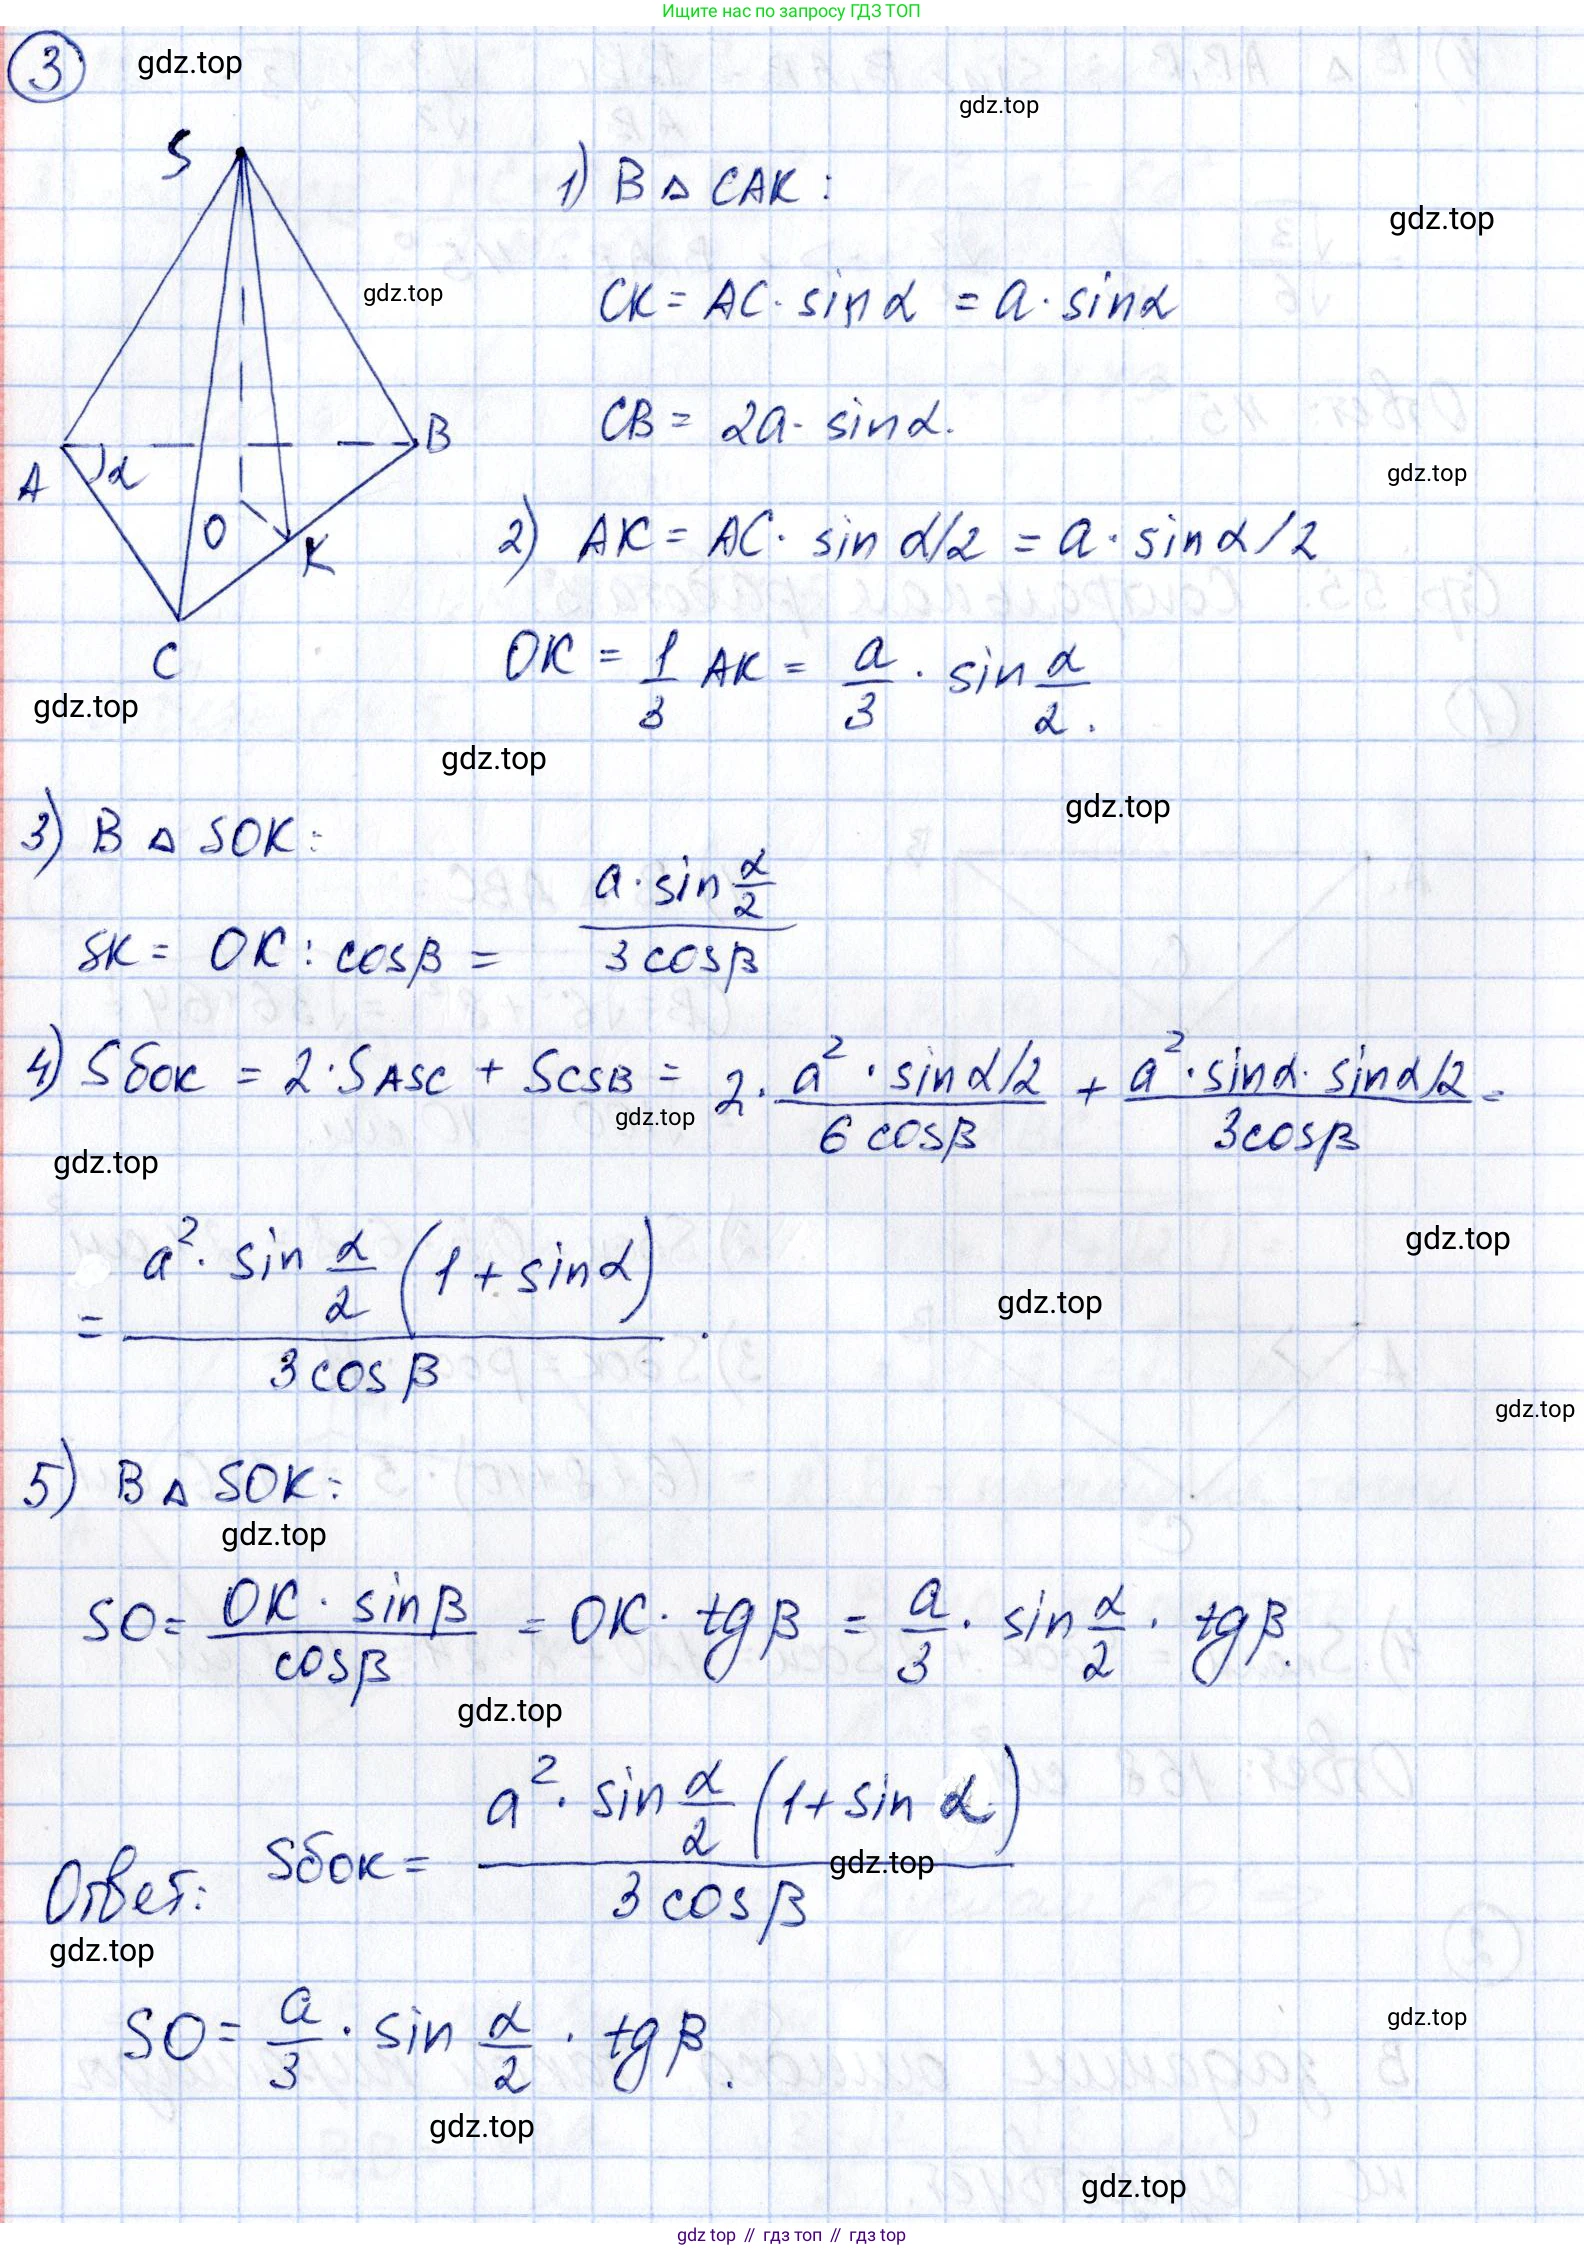 Ищите нас по запросу ГДЗ ТОП
3
gdz.top
gdz.top
S
1) В △ CAK:
gdz.top
gdz.top
CK = AC · sin α = a · sin α
CB = 2a · sin α.
B
gdz.top
A
α
O
K
2) AK = AC · sin α/2 = a · sin α/2
C
OK = 1/3 AK = a/3 · sin α/2.
gdz.top
gdz.top
gdz.top
3) В △ SOK:
SK = OK : cos β = a · sin α/2 / 3 cos β
4) Sбок = 2 · SASC + SCSB = 2 · a² · sin α/2 / 6 cos β + a² · sin α · sin α/2 / 3 cos β =
gdz.top
gdz.top
gdz.top
= a² · sin α/2 (1 + sin α) / 3 cos β.
gdz.top
gdz.top
5) В △ SOK:
gdz.top
SO = OK · sin β / cos β = OK · tg β = a/3 · sin α/2 · tg β.
gdz.top
Ответ: Sбок = a² · sin α/2 (1 + sin α) / 3 cos β
gdz.top
gdz.top
SO = a/3 · sin α/2 · tg β.
gdz.top
gdz.top
gdz.top
gdz top // гдз топ // гдз top